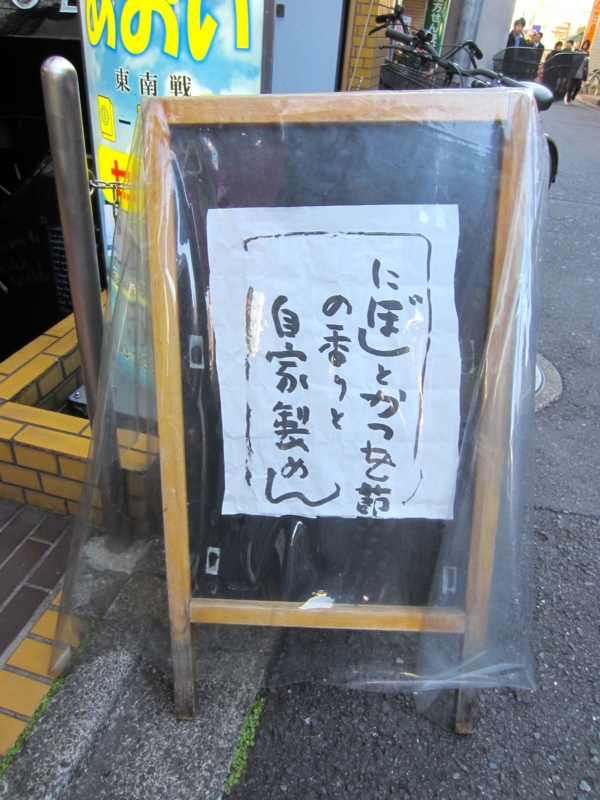 あおい
東南戦
にぼしとかつを節
の香りと
自家製めん